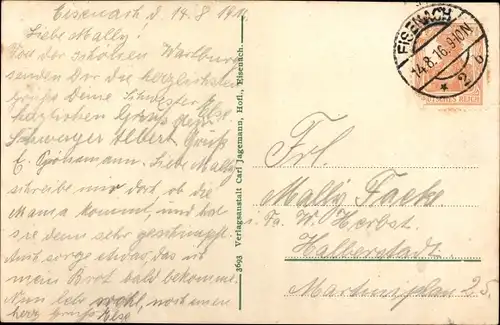 Eisenach d. 14.8.
Liebe Mally!
Von der schönen Wartburg
senden Dir die herzlichsten
Grüße Deine Schwester Else
herzlichen Gruß dein
Schwager Albert Gruß
E. Liebe Mally
schreibe mir doch ob die
Mama kommt, und hat
sie denn sehr geschimpft
Auch sorge etwas, das ich
mein Brot bald bekomme.
Nun lebe wohl, noch
herz Gruß Else
3693 Verlagsanstalt Carl Jagemann, Hofl., Eisenach.
EISENACH
14.8.16.9-10N.
* 2 b
DEUTSCHES REICH
Frl.
Mally Facke
i. Fa. W. Herbst.
Halberstadt
Martiniplan 25.